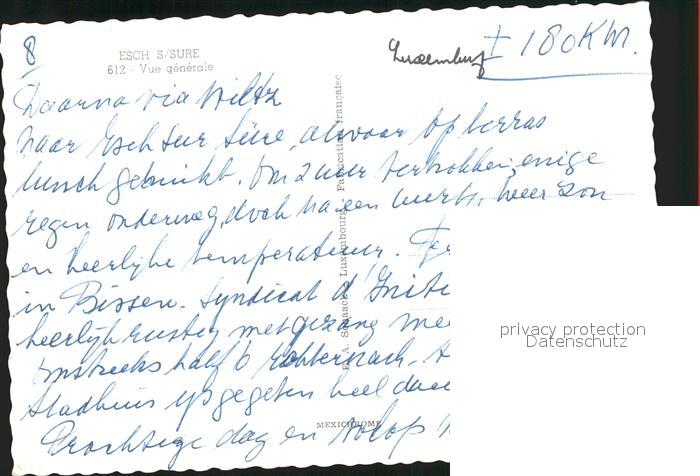 8
ESCH S/SURE
612 - Vue générale
Luxemburg ± 180 KM.
Daarna via Wiltz
naar Esch sur Sûre, alwaar op terras
lunch gebruikt. Om 2 uur vertrokken, enige
regen onderweg, doch na een uurtje weer zon
en heerlijke temperatuur.
in Bissen. Syndicat d'Initi
heerlijk rustig met gezang
omstreeks half 6 Echternach.
Stadhuis ijs gegeten heel
Prachtige dag en volop
E. A. Schaack, Luxembourg Fabrication française
MEXICHROME
privacy protection
Datenschutz